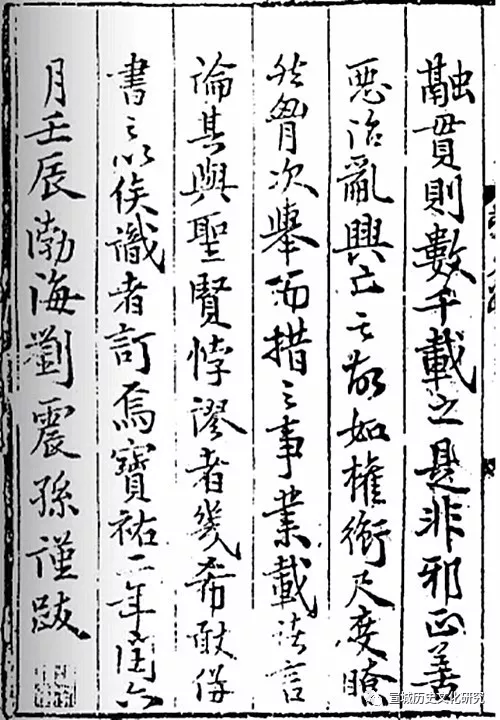 融貫則數千載之是非邪正善
惡治亂興亡之故如權衡尺度瞭
然胷次舉而措之事業載諸言
論其與聖賢悖謬者幾希敢併
書之以俟識者訂焉寶祐二年閏六
月壬辰渤海劉震孫謹跋
宣城历史文化研究